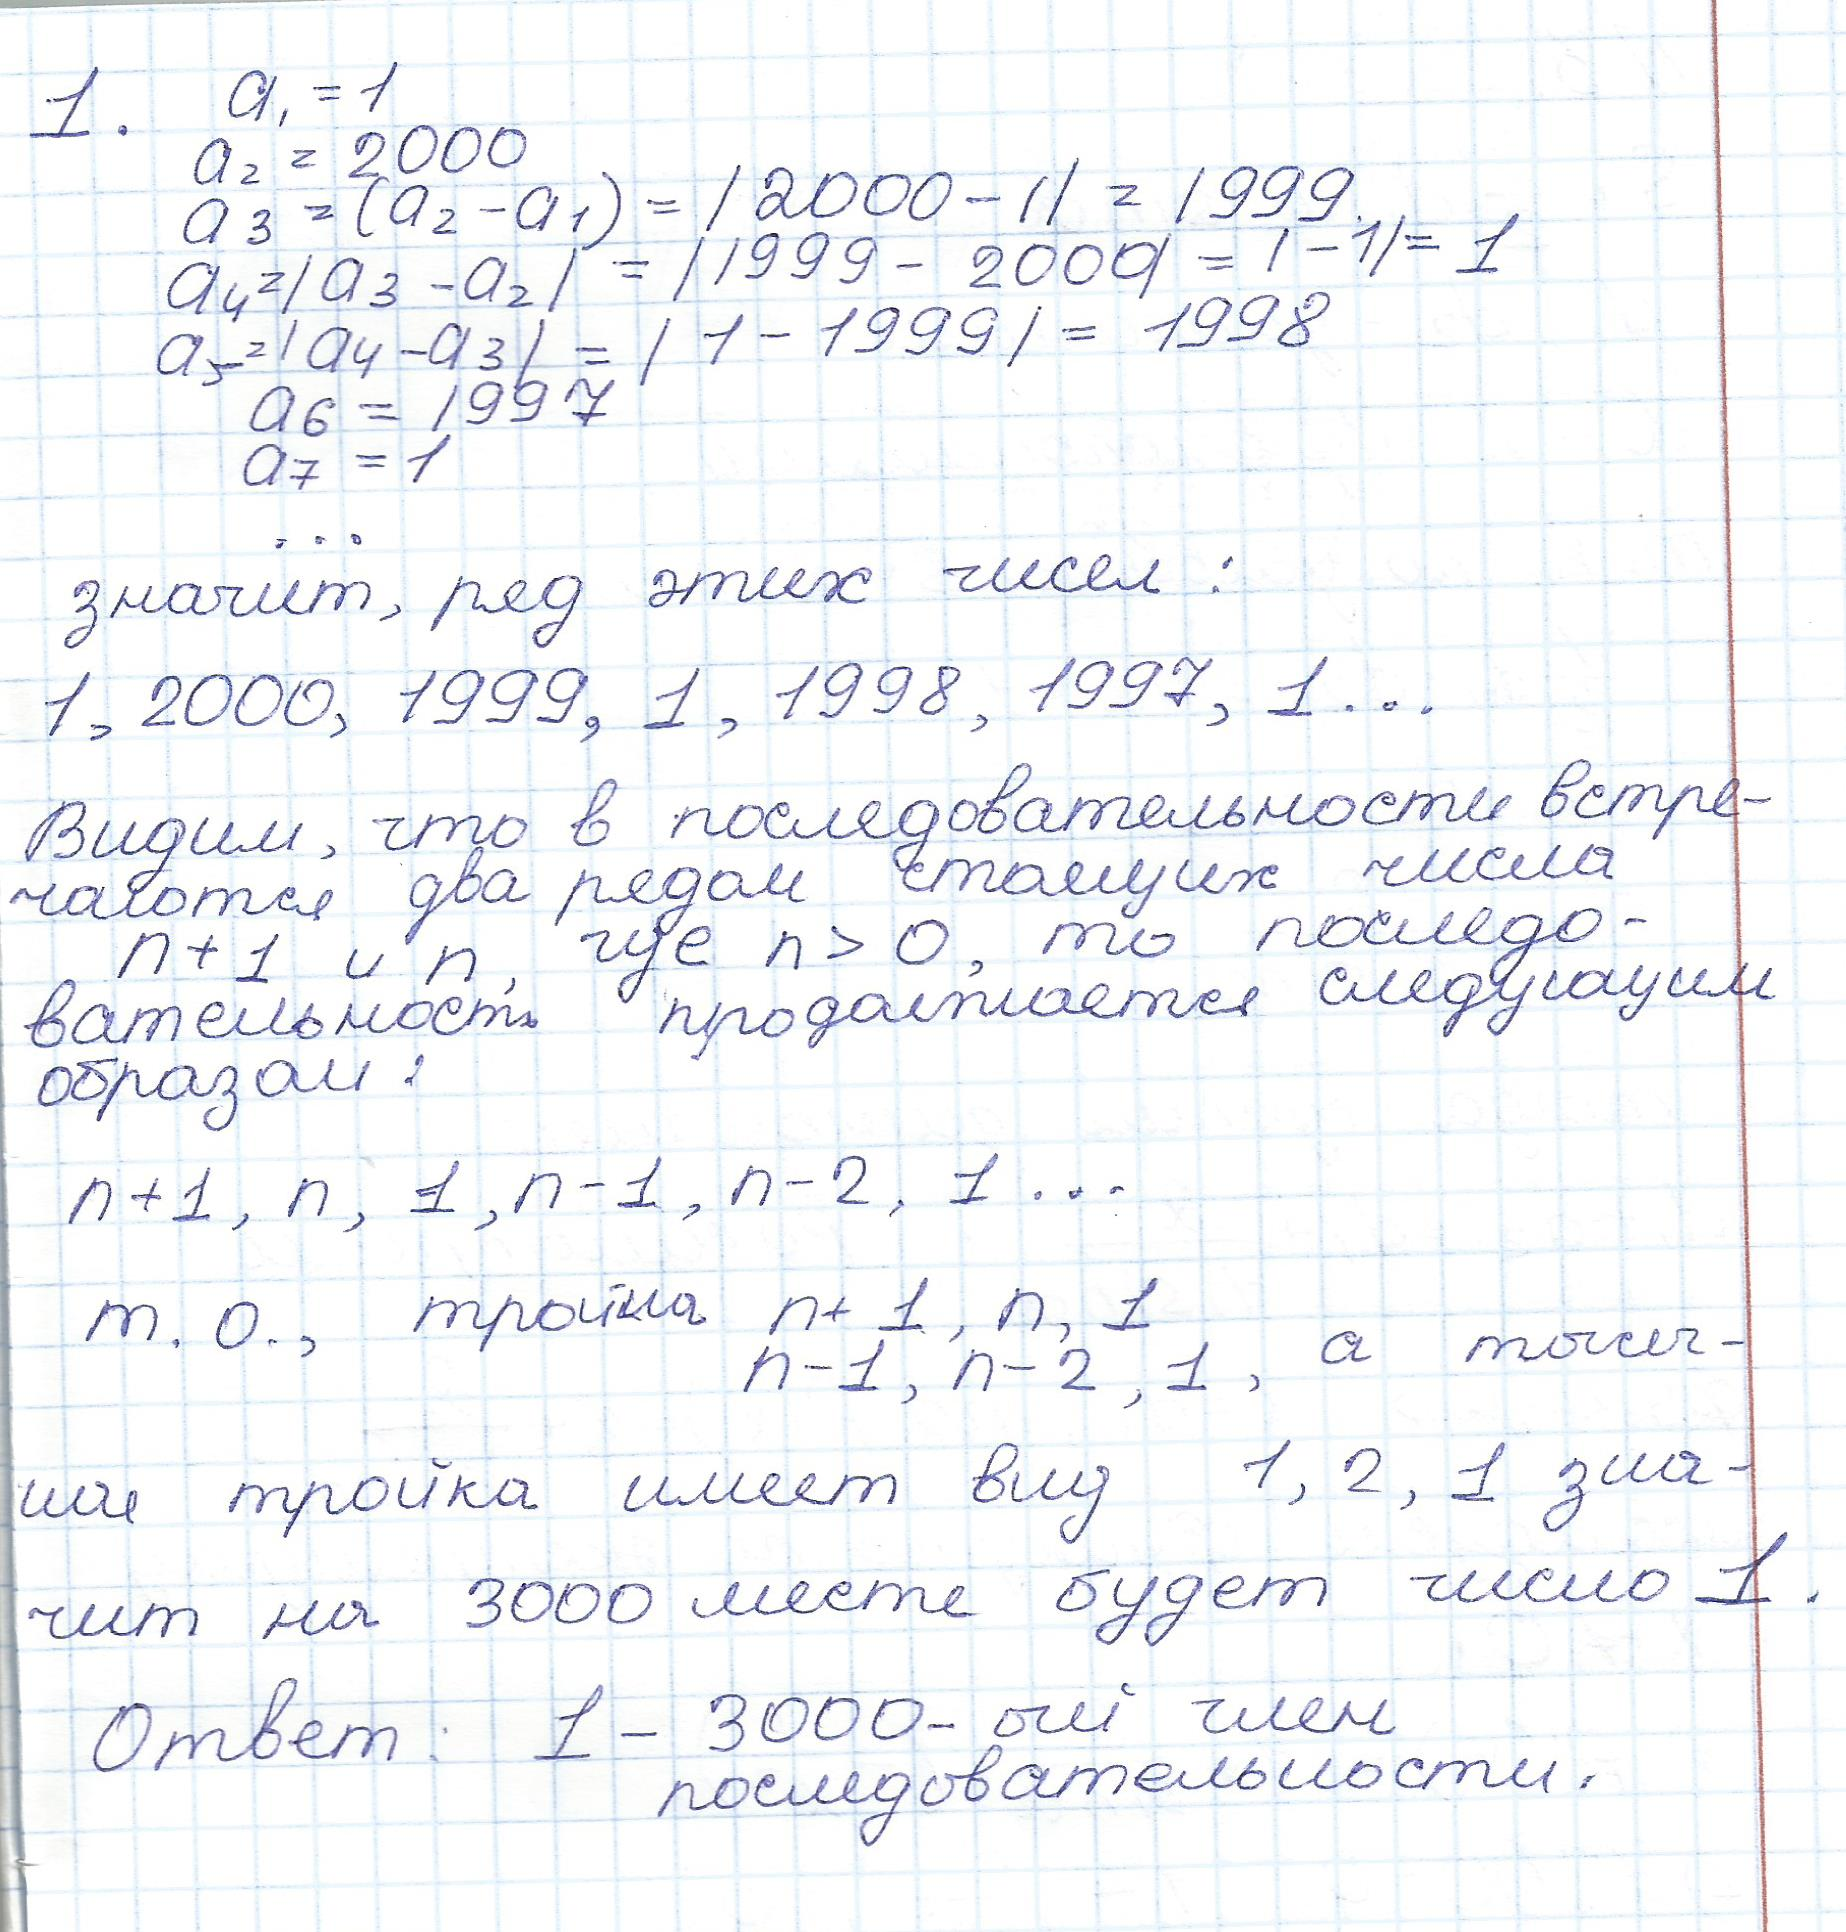 1. a₁ = 1
a₂ = 2000
a₃ = (a₂ - a₁) = |2000 - 1| = 1999.
a₄ = |a₃ - a₂| = |1999 - 2000| = |-1| = 1
a₅ = |a₄ - a₃| = |1 - 1999| = 1998
a₆ = 1997
a₇ = 1
...
значит, ряд этих чисел:
1, 2000, 1999, 1, 1998, 1997, 1...
Видим, что в последовательности встре-
чаются два рядом стоящих числа
n+1 и n, где n > 0, то последо-
вательность продолжается следующим
образом:
n+1, n, 1, n-1, n-2, 1...
т. о., тройка n+1, n, 1
n-1, n-2, 1, а тысяч-
ная тройка имеет вид 1, 2, 1 зна-
чит на 3000 месте будет число 1.
Ответ: 1 - 3000-ый член
последовательности.